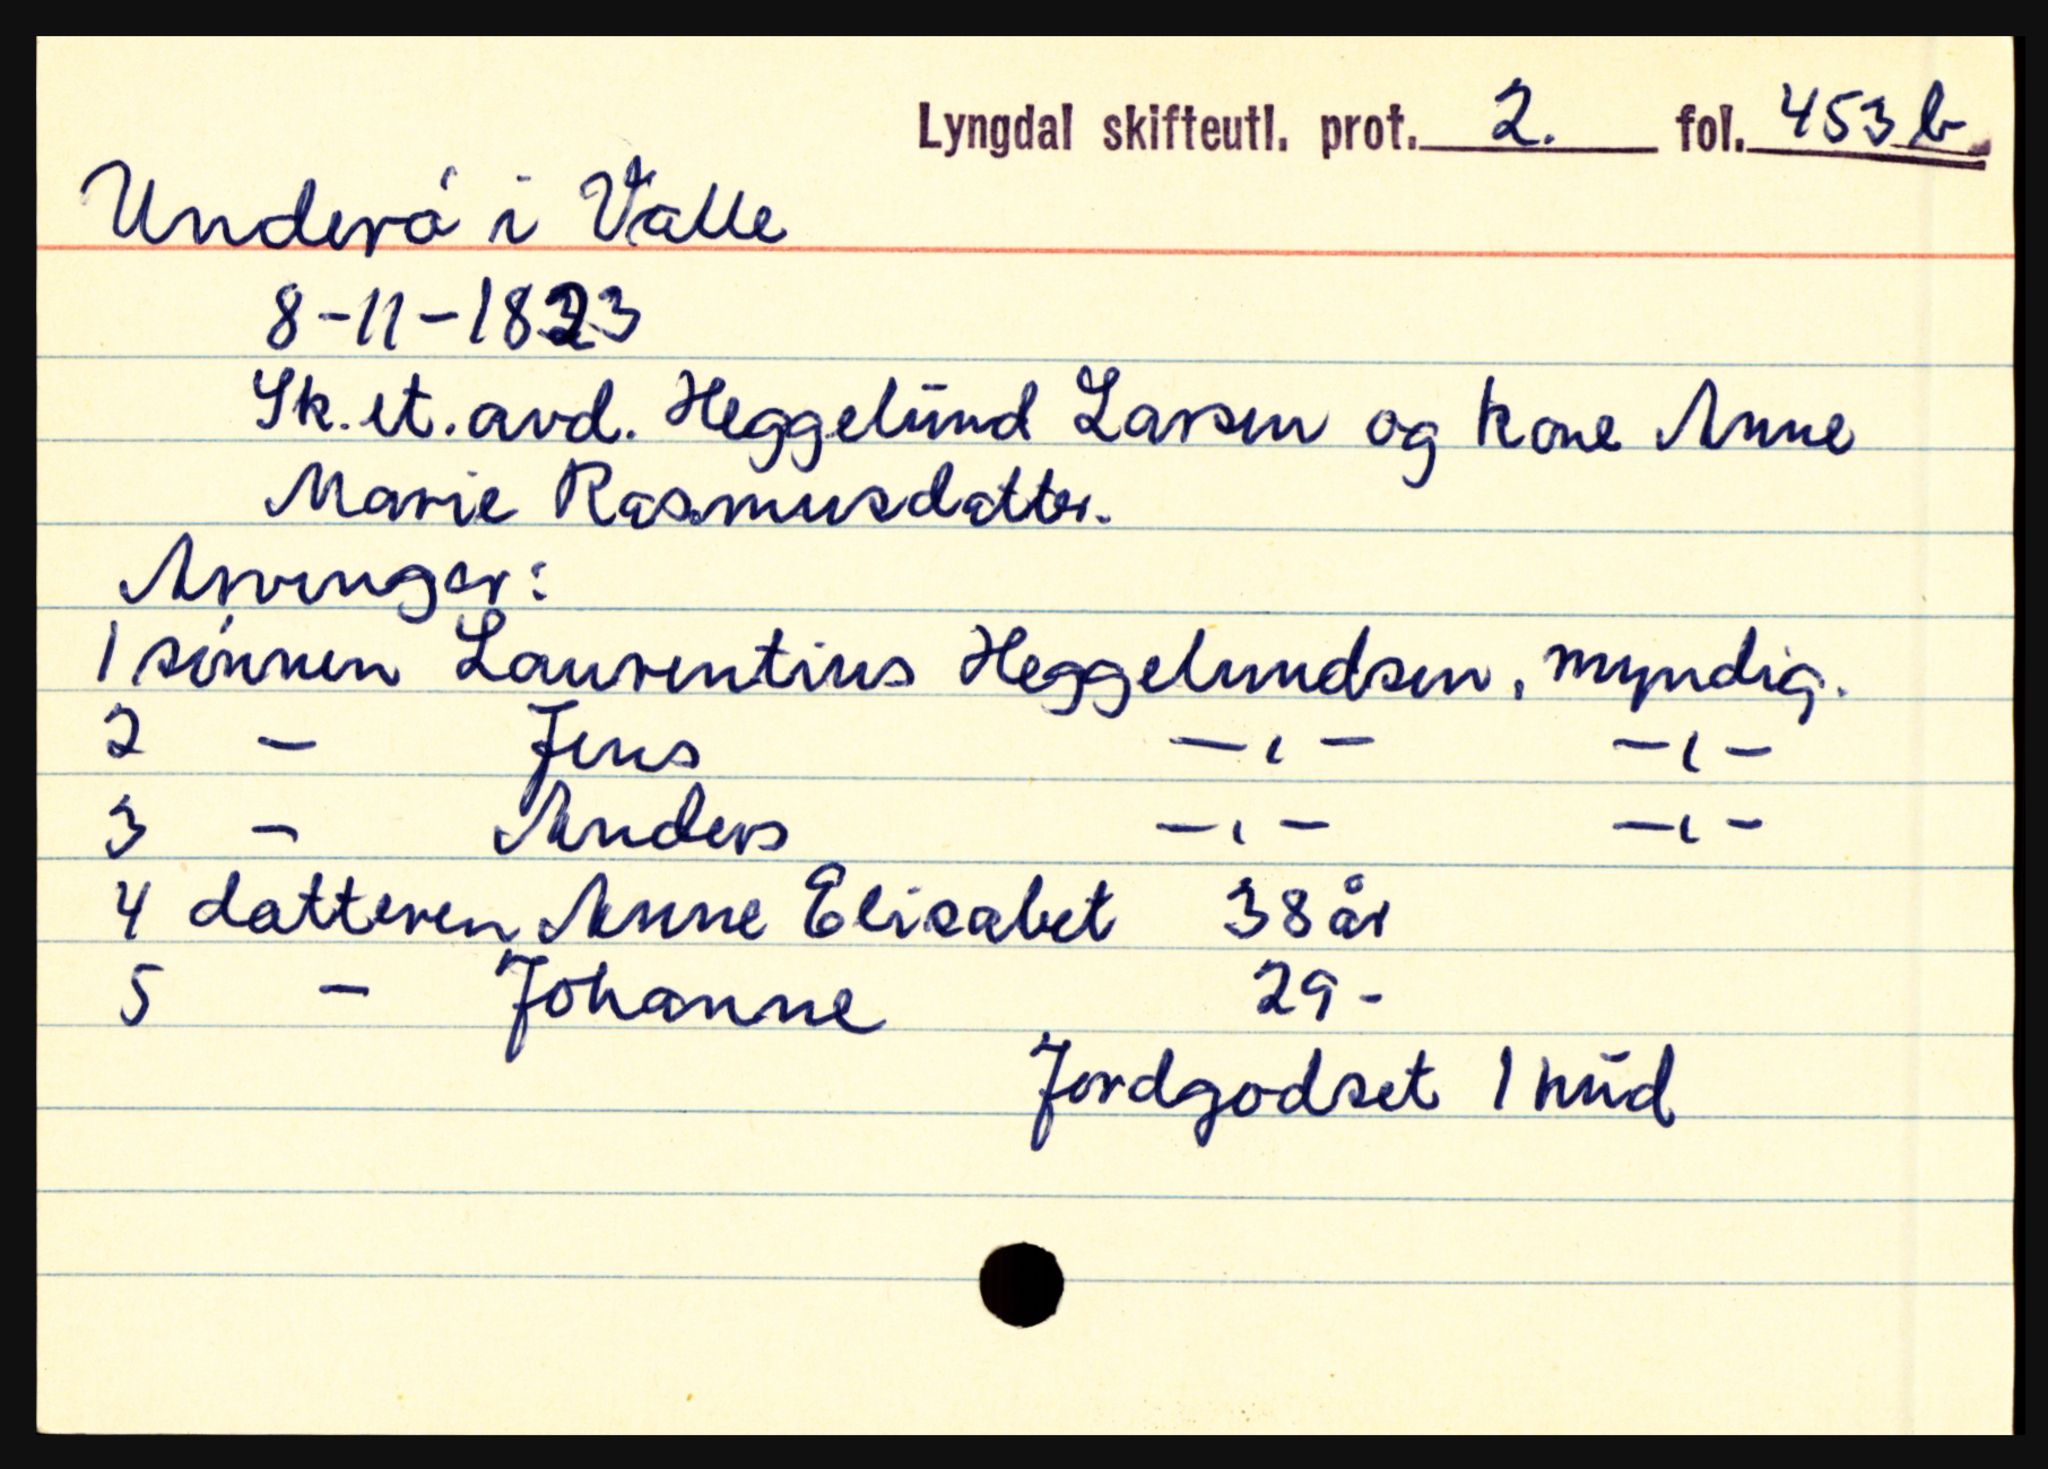 Lyngdal skifteutl. prot. 2. fol. 453 b
Underó i Valle
8-11-1823
Sk. et. avd. Heggelund Larsen og kone Anne
Marie Rasmusdatter.
Arvinger:
1 sónnen Laurentius Heggelundsen, myndig.
2 - Jens -"- -"-
3 - Anders -"- -"-
4 datteren Anne Elisabet 38 år
5 - Johanne 29 -
Jordgodset 1 hud